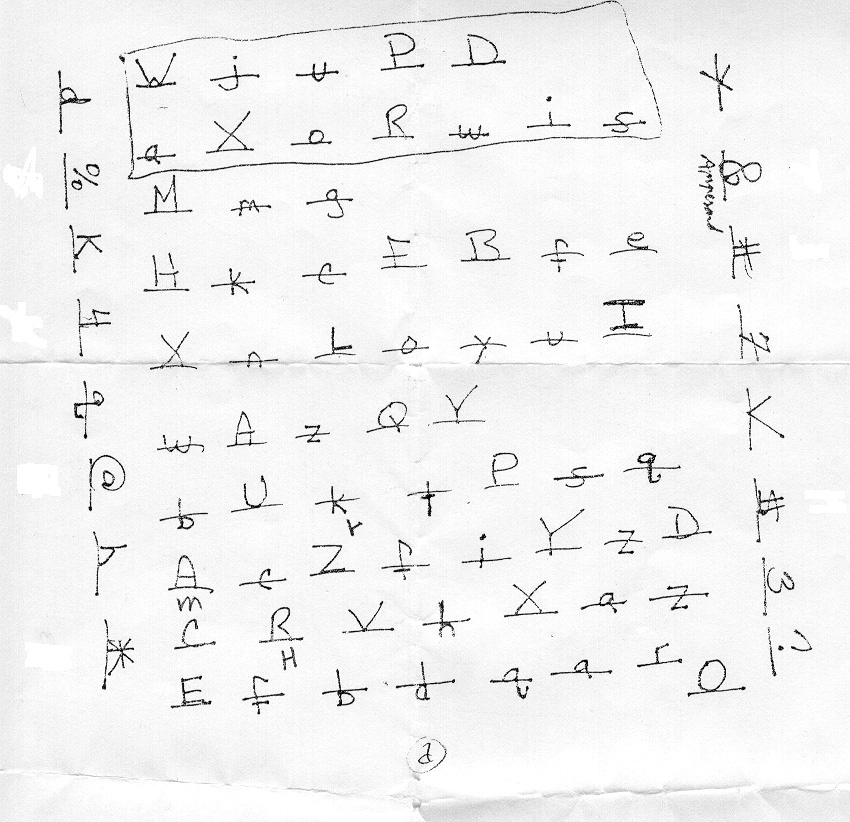 W j u P D
a X o R w i s
M m g
H k c I B f e
X n L o y u I
w A z Q V
b U k r t P s q
A c Z f i Y z D
m
C R V h X a z
H
E f b d q a r O
d
% 
K
4
q
@
*
&
Ampersand
#
Z
K
#
3
?
d